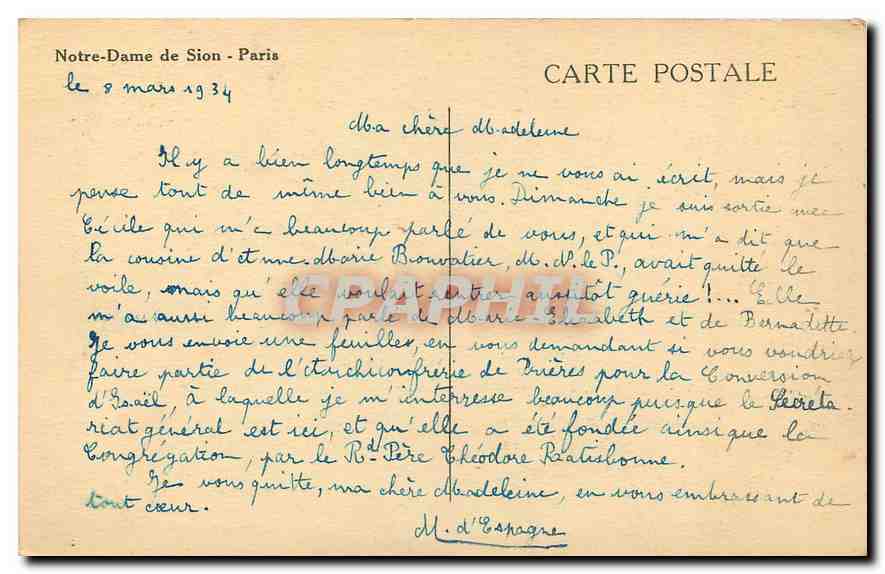 Notre-Dame de Sion - Paris
CARTE POSTALE
le 8 mars 1934
Ma chère Madeleine
Il y a bien longtemps que je ne vous ai écrit, mais je
pense tout de même bien à vous. Dimanche je suis sortie avec
Cécile qui m'a beaucoup parlé de vous, et qui m'a dit que
la cousine d'Anne-Marie Bouvatier, M. N. le P., avait quitté le
voile, mais qu'elle voulait rentrer aussitôt guérie !... Elle
m'a aussi beaucoup parlé de Marie Elisabeth et de Bernadette.
Je vous envoie une feuilles, en vous demandant si vous voudriez
faire partie de l'Archiconfrérie de Prières pour la Conversion
d'Israël à laquelle je m'interresse beaucoup puisque le Secréta-
riat général est ici, et qu'elle a été fondée ainsi que la
Congrégation, par le Rd. Père Théodore Ratisbonne.
Je vous quitte, ma chère Madeleine, en vous embrassant de
tout cœur.
M. d'Espagne
CPAPHIL